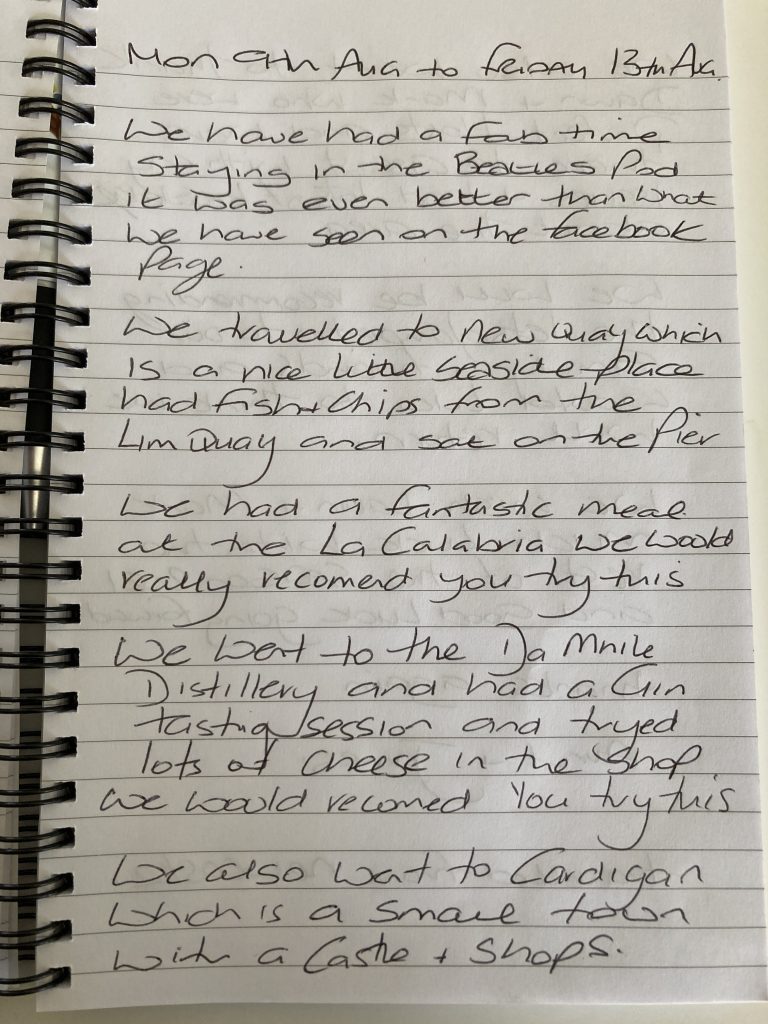 Mon 9th Aug to Friday 13th Aug.
We have had a fab time
Staying in the Beatles Pod
it was even better than what
we have seen on the facebook
page.
We travelled to New Quay which
is a nice little seaside place
had fish + chips from the
Lim Quay and sat on the Pier
We had a fantastic meal
at the La Calabria we would
really recomend you try this
We went to the Da Mnile
Distillery and had a Gin
tasting session and tryed
lots of cheese in the shop.
we would recomed you try this
We also went to Cardigan
which is a small town
with a Castle + shops.